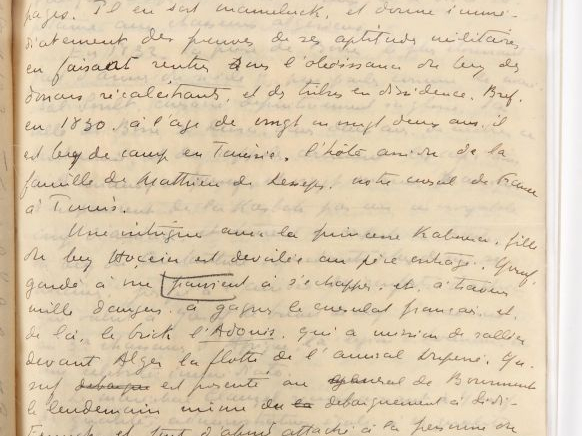 pages. Il en sort mameluck, et donne immé-
diatement des preuves de ses aptitudes militaires
en faisant rentrer sous l'obéissance du bey des
douars récalcitrants, et des tribus en dissidence. Bref,
en 1830, à l'âge de vingt ou vingt deux ans, il
est bey de camp en Tunisie, l'hôte ami de la
famille de Mathieu de Lesseps, notre consul de France
à Tunis.
Une intrigue avec la princesse Kaboura, fille
du bey Hoccein est dévoilée au père outragé. Yusuf,
gardé à vue parvient à s'échapper et, à travers
mille dangers, à gagner le consulat français et,
de là, le brick l'Adonis, qui a mission de rallier
devant Alger la flotte de l'amiral Duperré. Yu-
suf est présenté au général de Bourmont
le lendemain même du débarquement à Sidi-
Ferruch et tout d'abord attaché à la personne du